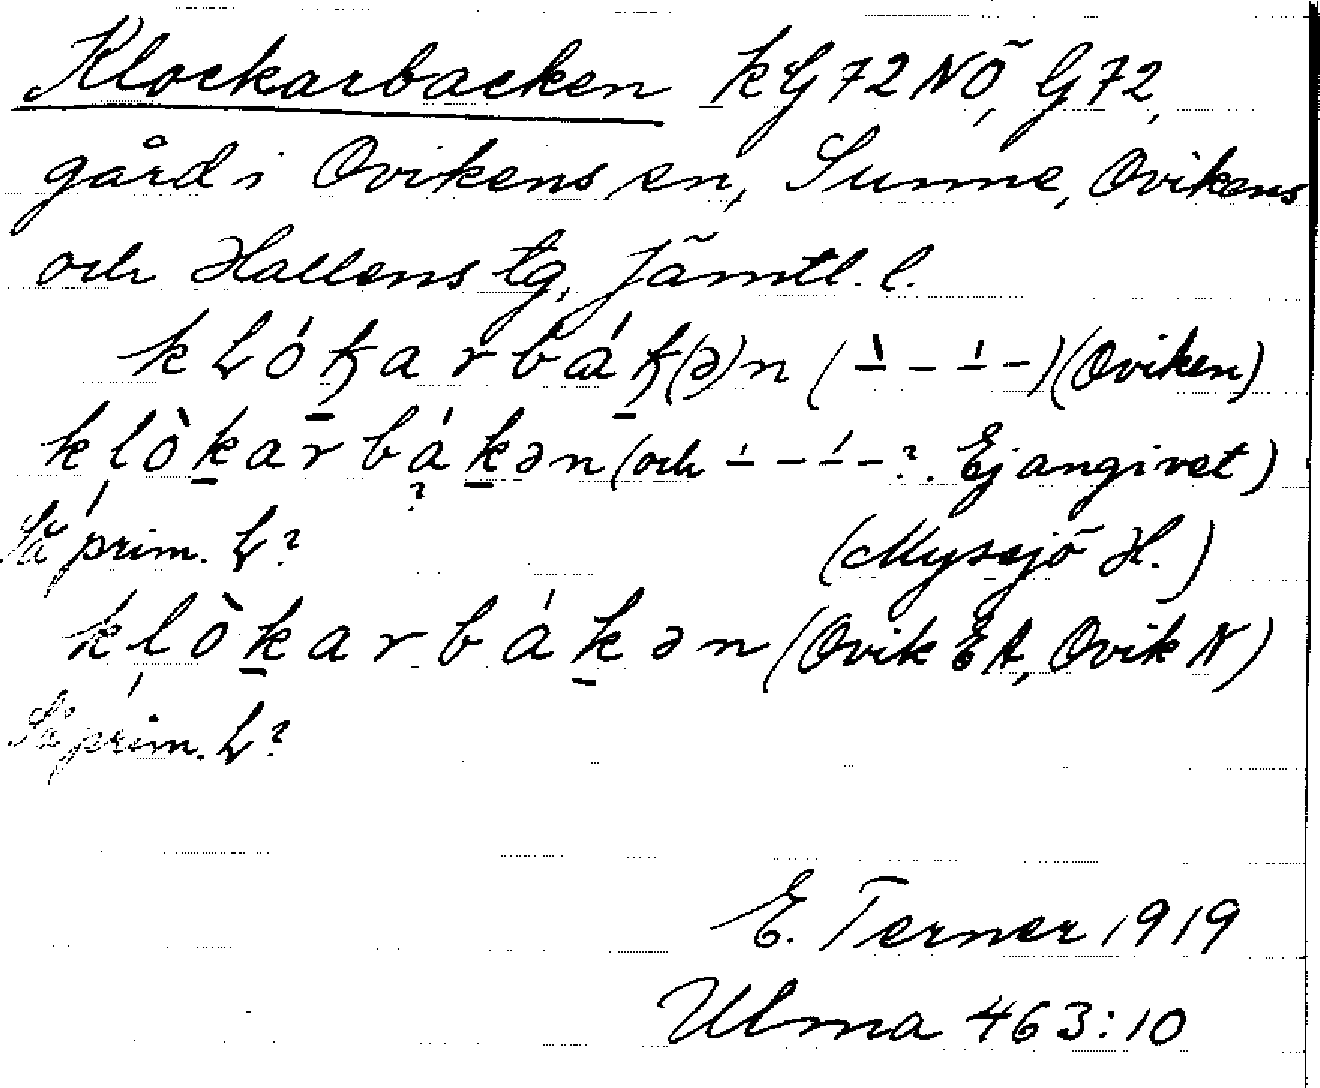 Klockarbacken kG72NÖ, G72,
gård i Ovikens sn, Sunne, Ovikens
och Hallens tg, Jämtl. l.
kLókarbák(ə)n ( - - - - ) (Oviken)
klòkarbákən (och - - - - ?. Ej angivet)
Så prim. L? (Myssjö H.)
klòkarbákən (Ovik EA, Ovik N)
Så prim. L?
E. Terner 1919
Ulma 463:10